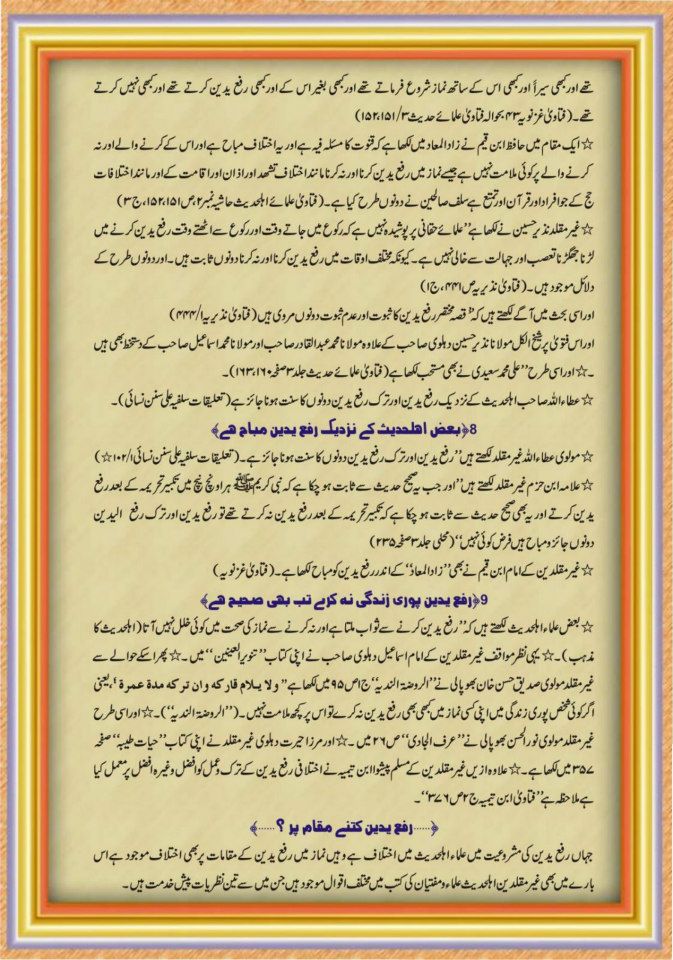 تھے اور کبھی سراً اور کبھی اس کے ساتھ نماز شروع فرماتے تھے اور کبھی بغیر اس کے اور کبھی رفع یدین کرتے تھے اور کبھی نہیں کرتے
تھے۔ (فتاویٰ غزنویہ ۴۳ بحوالہ فتاویٰ علمائے حدیث ۳/۱۵۲،۱۵۱)
☆ ایک مقام میں حافظ ابن قیم نے زاد المعاد میں لکھا ہے کہ قنوت کا مسئلہ فیہ ہے اور یہ اختلاف مباح ہے اور اس کے کرنے والے اور نہ
کرنے والے پر کوئی ملامت نہیں ہے جیسے نماز میں رفع یدین کرنا اور نہ کرنا مانند اختلاف تشھد اور اذان اور اقامت کے اور مانند اختلافات
حج کے جو افراد اور قرآن اور تمتع ہے سلف صالحین نے دونوں طرح کیا ہے۔ (فتاویٰ علمائے اہلحدیث حاشیہ نمبر ۲ ص ۱۵۲،۱۵۱، ج ۳)
☆ غیر مقلد نذیر حسین نے لکھا ہے ’’علمائے حقانی پر پوشیدہ نہیں ہے کہ رکوع میں جاتے وقت اور رکوع سے اٹھتے وقت رفع یدین کرنے میں
لڑنا جھگڑنا تعصب اور جہالت سے خالی نہیں ہے۔ کیونکہ مختلف اوقات میں رفع یدین کرنا اور نہ کرنا دونوں ثابت ہیں۔ اور دونوں طرح کے
دلائل موجود ہیں۔ (فتاویٰ نذیریہ ص ۴۴۱، ج ۱)
اور اسی بحث میں آگے لکھتے ہیں کہ ’’قصہ مختصر رفع یدین کا ثبوت اور عدم ثبوت دونوں مروی ہیں (فتاویٰ نذیریہ ۱/۴۴۴)
اور اس فتویٰ پر شیخ الکل مولانا نذیر حسین دہلوی صاحب کے علاوہ مولانا محمد عبد القادر صاحب اور مولانا محمد اسماعیل صاحب کے دستخط بھی ہیں
۔☆ اور اسی طرح ’’علی محمد سعیدی نے بھی مستحب لکھا ہے (فتاویٰ علمائے حدیث جلد ۳ صفحہ ۱۶۰،۱۶۳)۔
☆ عطاء اللہ صاحب اہلحدیث کے نزدیک رفع یدین اور ترک رفع یدین دونوں کا سنت ہونا جائز ہے (تعلیقات سلفیہ علی سنن نسائی)۔
8﴿بعض اھلحدیث کے نزدیک رفع یدین مباح ھے﴾
☆ مولوی عطاء اللہ غیر مقلد لکھتے ہیں ’’رفع یدین اور ترک رفع یدین دونوں کا سنت ہونا جائز ہے۔ (تعلیقات سلفیہ علی سنن نسائی ۱/۱۰۲☆)
☆ علامہ ابن حزم غیر مقلد لکھتے ہیں ’’اور جب یہ صحیح حدیث سے ثابت ہو چکا ہے کہ نبی کریم ﷺ ہر اونچ نیچ میں تکبیر تحریمہ کے بعد رفع
یدین کرتے اور یہ بھی صحیح حدیث سے ثابت ہو چکا ہے کہ تکبیر تحریمہ کے بعد رفع یدین نہ کرتے تھے تو رفع یدین اور ترک رفع الیدین
دونوں جائز و مباح ہیں فرض کوئی نہیں‘‘ (محلی جلد ۳ صفحہ ۲۳۵)
☆ غیر مقلدین کے امام ابن قیم نے بھی ’’زاد المعاد‘‘ کے اندر رفع یدین کو مباح لکھا ہے۔ (فتاویٰ غزنویہ)
9﴿رفع یدین پوری زندگی نہ کرے تب بھی صحیح ھے﴾
☆ بعض علماء اہلحدیث لکھتے ہیں کہ ’’رفع یدین کرنے سے ثواب ملتا ہے اور نہ کرنے سے نماز کی صحت میں کوئی خلل نہیں آتا (اہلحدیث کا
مذہب)۔☆ یہی نظر مواقف غیر مقلدین کے امام اسماعیل دہلوی صاحب نے اپنی کتاب ’’تنویر العینین‘‘ میں۔☆ پھر اسکے حوالے سے
غیر مقلد مولوی صدیق حسن خان بھوپالی نے ’’الروضۃ الندیہ‘‘ ج ۱ ص ۹۵ میں لکھا ہے ’’ولا یلام تارکہ وان ترکہ مدۃ عمرۃ‘، یعنی
اگر کوئی شخص پوری زندگی میں اپنی کسی نماز میں کبھی بھی رفع یدین نہ کرے تو اس پر کچھ ملامت نہیں۔ (’’الروضۃ الندیہ‘‘)۔☆ اور اسی طرح
غیر مقلد مولوی نور الحسن بھوپالی نے ’’عرف الجادی‘‘ ص ۲۶ میں۔☆ اور مرزا حیرت دہلوی غیر مقلد نے اپنی کتاب ’’حیات طیبہ‘‘ صفحہ
۳۵۷ میں لکھا ہے۔☆ علاوہ ازیں غیر مقلدین کے مسلم پیشوا ابن تیمیہ نے اختلافی رفع یدین کے ترک و عمل کو افضل وغیرہ افضل پر معمل کیا
ہے ملاحظہ ہے ’’فتاویٰ ابن تیمیہ ج ۲ ص ۳۷۶‘‘۔
﴿......رفع یدین کتنے مقام پر ؟......﴾
جہاں رفع یدین کی مشروعیت میں علماء اہلحدیث میں اختلاف ہے وہیں نماز میں رفع یدین کے مقامات پر بھی اختلاف موجود ہے اس
بارے میں بھی غیر مقلدین اہلحدیث علماء و مفتیان کی کتب میں مختلف اقوال موجود ہیں جن میں سے تین نظریات پیش خدمت ہیں۔